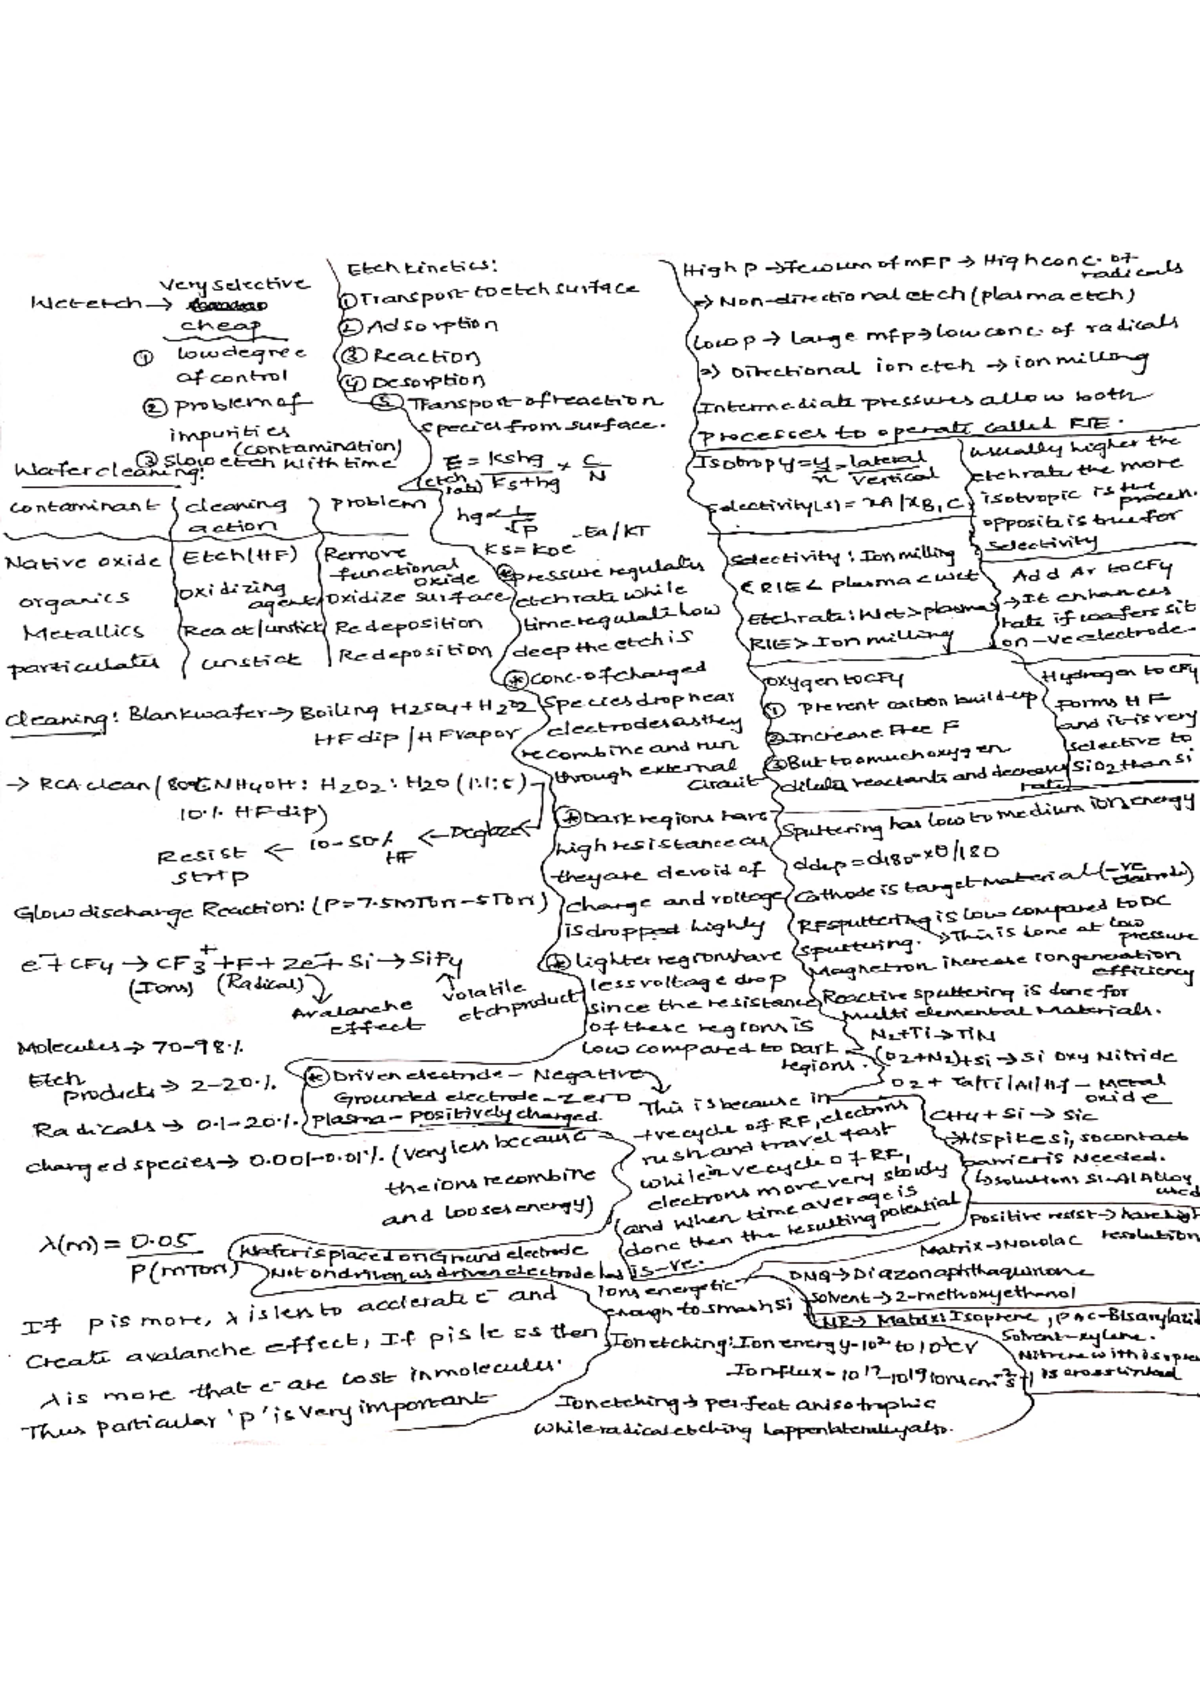 Very selective
Wet etch →
cheap
① low degree
of control
② problem of
impurities
(contamination)
③ Slow etch with time
Wafer cleaning:
contaminant cleaning action problem
Native oxide Etch (HF) Remove functional oxide
organics oxidizing agent oxidize surface
Metallics React/unstick Redeposition
particulates unstick Redeposition
cleaning: Blank wafer → Boiling H2SO4 + H2O2
HF dip / HF vapor
→ RCA clean (80°C NH4OH : H2O2 : H2O (1:1:5)
10% HF dip)
Resist ← 10-50% HF ← Deglaze
strip
Glow discharge Reaction: (P = 7.5mTorr - 5Torr)
e⁻ + CF4 → CF3⁺ + F + 2e⁻ + Si → SiF4
(Ions) (Radical)
Avalanche effect
volatile etch product
Molecules → 70-98%
Etch products → 2-20%
Radicals → 0.1-20%
charged species → 0.001-0.01% (very less because
the ions recombine
and looses energy)
λ(m) = 0.05 / P(mTorr)
If p is more, λ is less to acclerate e⁻ and
Create avalanche effect, If p is less then
λ is more that e⁻ are lost in molecules.
Thus particular 'p' is very important
Etch kinetics:
① Transport to etch surface
② Adsorption
③ Reaction
④ Desorption
⑤ Transport of reaction
species from surface.
E = Kshg / Ks+hg × C/N
(etch rate)
hg ∝ 1/√p
Ks = Koe -Ea/KT
* pressure regulates
etch rate while
time regulate how
deep the etch is
* conc. of charged
species drop near
electrodes as they
recombine and run
through external
circuit
* Dark regions have
high resistance as
they are devoid of
charge and voltage
is dropped highly
* lighter regions have
less voltage drop
since the resistance
of these regions is
low compared to Dark
regions.
* Driven electrode - Negative
Grounded electrode - zero
plasma - positively charged.
This is because in
+ve cycle of RF, electrons
rush and travel fast
while in -ve cycle of RF,
electrons move very slowly
and when time average is
done then the resulting potential
is -ve.
Wafer is placed on Ground electrode
Not on driven as driven electrode has
Ions energetic
enough to smash Si
Ion etching: Ion energy - 10² to 10³ eV
Ion flux - 10¹⁷-10¹⁹ ions cm⁻² s⁻¹
Ion etching → perfect anisotrophic
while radical etching happen laterally also.
High P → few um of MFP → High conc. of
radicals
⇒ Non-directional etch (plasma etch)
Low p → large mfp → low conc. of radicals
⇒ Directional ion etch → ion milling
Intermediate pressures allow both
processes to operate called RIE.
Isotropy = y/x = lateral/vertical
Selectivity (s) = xA / xB, C
usually higher the
etch rate the more
isotropic is the
process.
opposite is true for
selectivity
Selectivity: Ion milling
< RIE < plasma < wet
Etch rate: Wet > plasma
RIE > Ion milling
Add Ar to CF4
→ It enhances
rate if wafers sit
on -ve electrode.
oxygen to CF4
① prevent carbon build-up
② Increase Free F
③ But too much oxygen
dilutes reactants and decreases
rate
Hydrogen to CF4
Forms HF
and it is very
selective to
SiO2 than Si
Sputtering has low to medium ions energy
Cathode is target material (-ve
electrode)
RF sputtering is low compared to DC
sputtering. → This is done at low
pressure
Magnetron increase ion generation
efficiency
Reactive sputtering is done for
multi elemental materials.
N2 + Ti → TiN
(O2+N2) + Si → Si Oxy Nitride
O2 + Ta/Ti/Al/Hf - Metal
oxide
CH4 + Si → SiC
→ Al spike si, so contact
barrier is needed.
↳ solutions Si-Al Alloy
used
Positive resist → have high
resolution
Matrix → Novolac
DNQ → Diazonaphthaquinone
Solvent → 2-methoxyethanol
NR → Matrix: Isoprene, PAC-Bisarylazid
Solvent - xylene.
Nitrene with isopre
is crosslinked